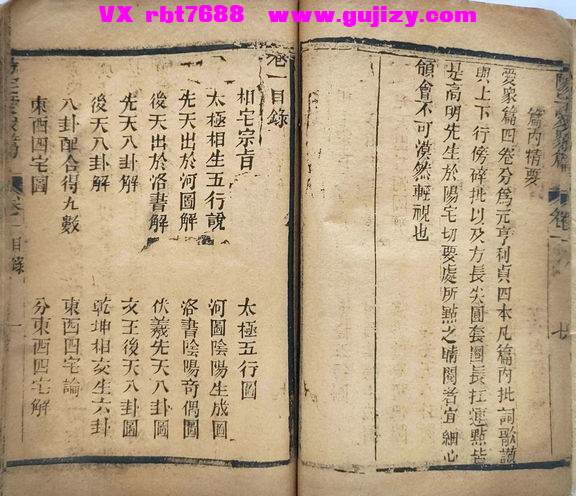 VX rbt7688 www.gujizy.com
篇內精要
愛衆篇四卷分爲元亨利貞四本凡篇內批詞歌謠
與上下行傍碎批以及方長尖圓套圈長扛連點皆
是高明先生於陽宅切要處所點之睛閱者宜細心
領會不可漠然輕視也
七
卷一目錄
相宅宗旨
太極相生五行說
太極五行圖
先天出於河圖解
河圖陰陽生成圖
後天出於洛書解
洛書陰陽奇偶圖
先天八卦解
伏羲先天八卦圖
後天八卦解
文王後天八卦圖
八卦配合得九數
乾坤相交生六卦
東西四宅圖
東西四宅論
分東西四宅解
目錄
一